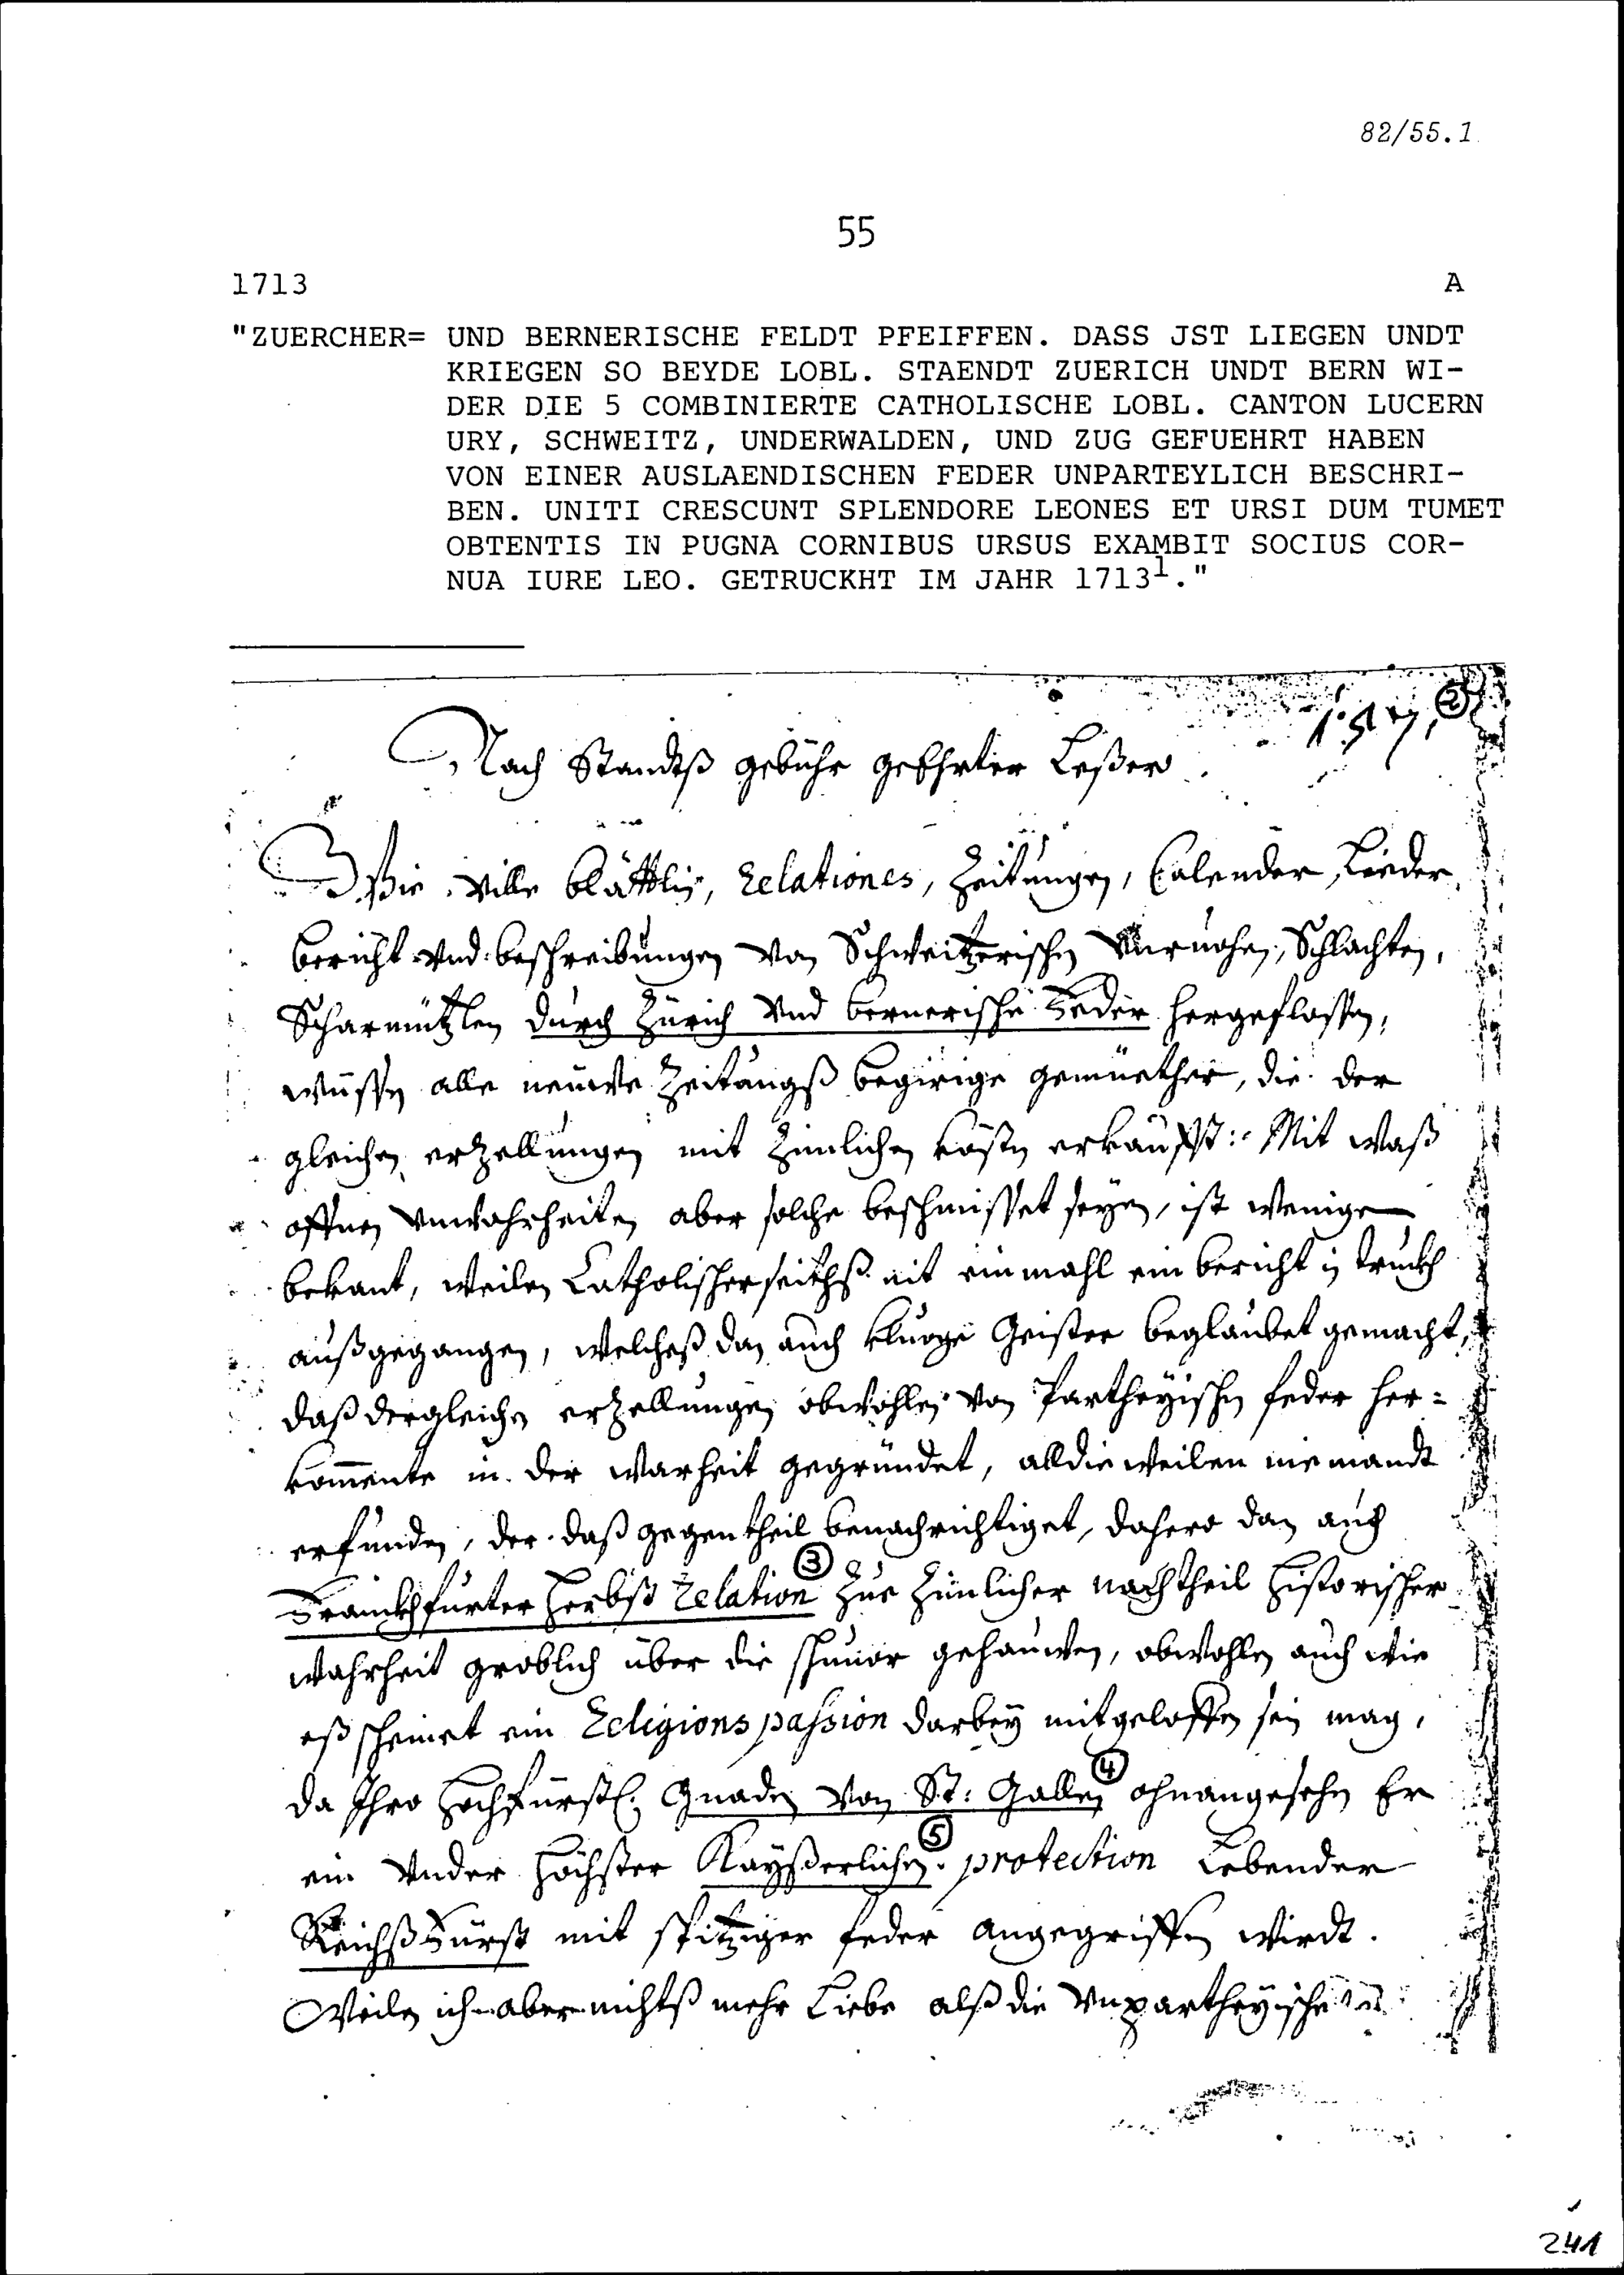 82/55.1
55
1713 A
"ZUERCHER= UND BERNERISCHE FELDT PFEIFFEN. DASS JST LIEGEN UNDT
KRIEGEN SO BEYDE LOBL. STAENDT ZUERICH UNDT BERN WI-
DER DIE 5 COMBINIERTE CATHOLISCHE LOBL. CANTON LUCERN
URY, SCHWEITZ, UNDERWALDEN, UND ZUG GEFUEHRT HABEN
VON EINER AUSLAENDISCHEN FEDER UNPARTEYLICH BESCHRI-
BEN. UNITI CRESCUNT SPLENDORE LEONES ET URSI DUM TUMET
OBTENTIS IN PUGNA CORNIBUS URSUS EXAMBIT SOCIUS COR-
NUA IURE LEO. GETRUCKHT IM JAHR 1713¹."
②
Nach Standtß gebühr geEhrter Leßer
Wie Ville blättlin, Relationes, Zeitungen, Calender, Lieder
bericht Vnd beschreibungen Von Schweitzerischen Vnruohen, Schlachten,
Scharmützlen durch Zürich Vnd bernerische Feder hergeflossen,
wüssen alle neuwe Zeitungß begirige gemüether, die der
gleichen erzellungen mit Zimlichen kösten erkaufft: Mit waß
offnen Vnwahrheiten aber solche beschmisset seyen, ist wenigen
bekant, weilen Catholischerseithß nit einmahl ein bericht in truckh
außgegangen, welcheß dan auch kluoge Geister beglaubet gemacht,
daß dergleichen erzellungen obwohlen von Partheyischen feder her=
komente in der warheit gegründet, alldieweilen niemandt
erfunden, der daß gegentheil benachrichtiget, dahero dan auch
Franckhfurter Herbst Relation ③ Zue Zimlicher nachtheil Historischer
wahrheit groblich über die schnuor gehauwen, obwohlen auch wie
eß scheinet ein Religions passion darbey mitgeloffen sein mag,
da Ihro Hochfürstl: Gnaden Von St: Gallen ④ ohnangesehen Er
ein Vnder Höchster Kayßerlichen ⑤ protection Lebender
Reichß Fürst mit spitziger feder angegriffen wirdt.
Weilen ich aber nichtß mehr Liebe alß die Vnpartheyische
241